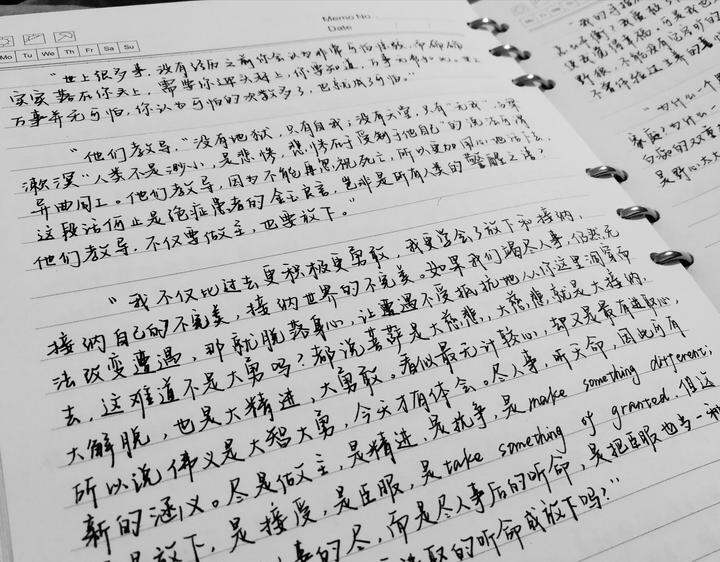 Memo No
Date
Mo Tu We Th Fr Sa Su
“世上很多事，没有经历之前你会认为非常可怕
实实落在你头上，需要你迎头对上，你
万事并无可怕，你认为可怕的次数多了，也就成了可怕。”
“他们教导，“没有地狱，只有自我；没有天堂，只有‘无我’，
人类不是渺小，是悲惨，悲惨在于受制于他自己”的说法
异曲同工。他们教导，因为不能再忽视死亡，所以更加用心地活下去，
这段话何止是绝症患者的金玉良言，岂非是所有人类的警醒之语？
他们教导，不仅要做主，也要放下。”
“我不仅比过去更积极更勇敢，我更学会了放下和接纳，
接纳自己的不完美，接纳世界的不完美。如果我们竭尽人事，仍然无
法改变遭遇，那就脱落身心，让遭遇不受抵抗地从你这里洞穿而
去，这难道不是大勇吗？都说菩萨是大慈悲，大慈悲，就是大接纳，
大解脱，也是大精进，大勇敢。看似最无计较心，却又是最有进取心，
所以说佛义是大智大勇，今天才有体会。尽人事，听天命，因此可有
新的涵义。尽是做主，是精进，是抗争，是make something different；
是放下，是接受，是臣服，是take something of granted. 但这
的尽，而是尽人事后的听命，是把臣服也当一种
的听命或放下吗？”
“为什么一个